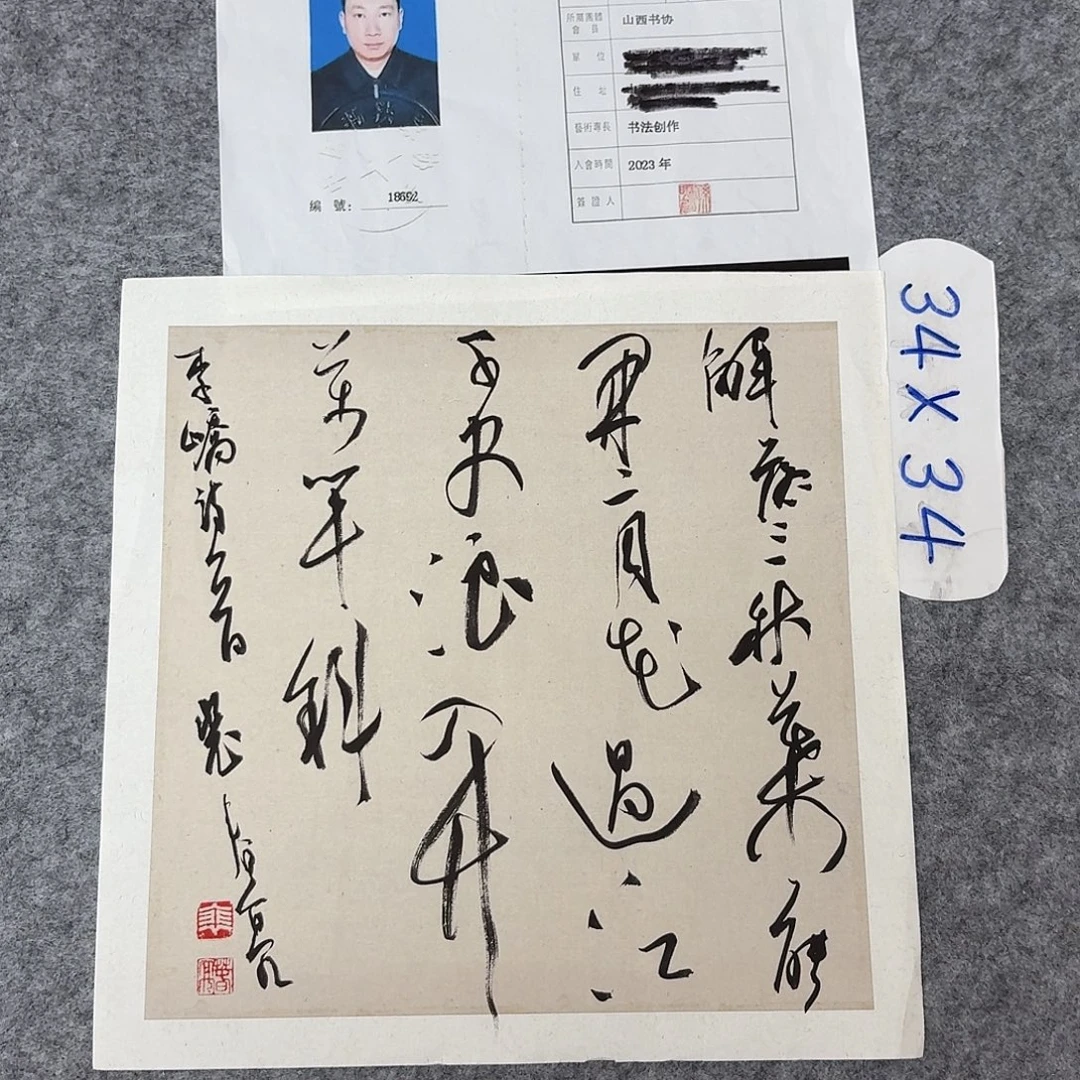 所屬團體會員 山西书协
單 位
住 址
藝術專長 书法创作
入會時間 2023 年
簽證人
編 號:
34×34
解落三秋葉能
開二月花過江
千尺浪入竹
萬竿斜
李嶠詩一首